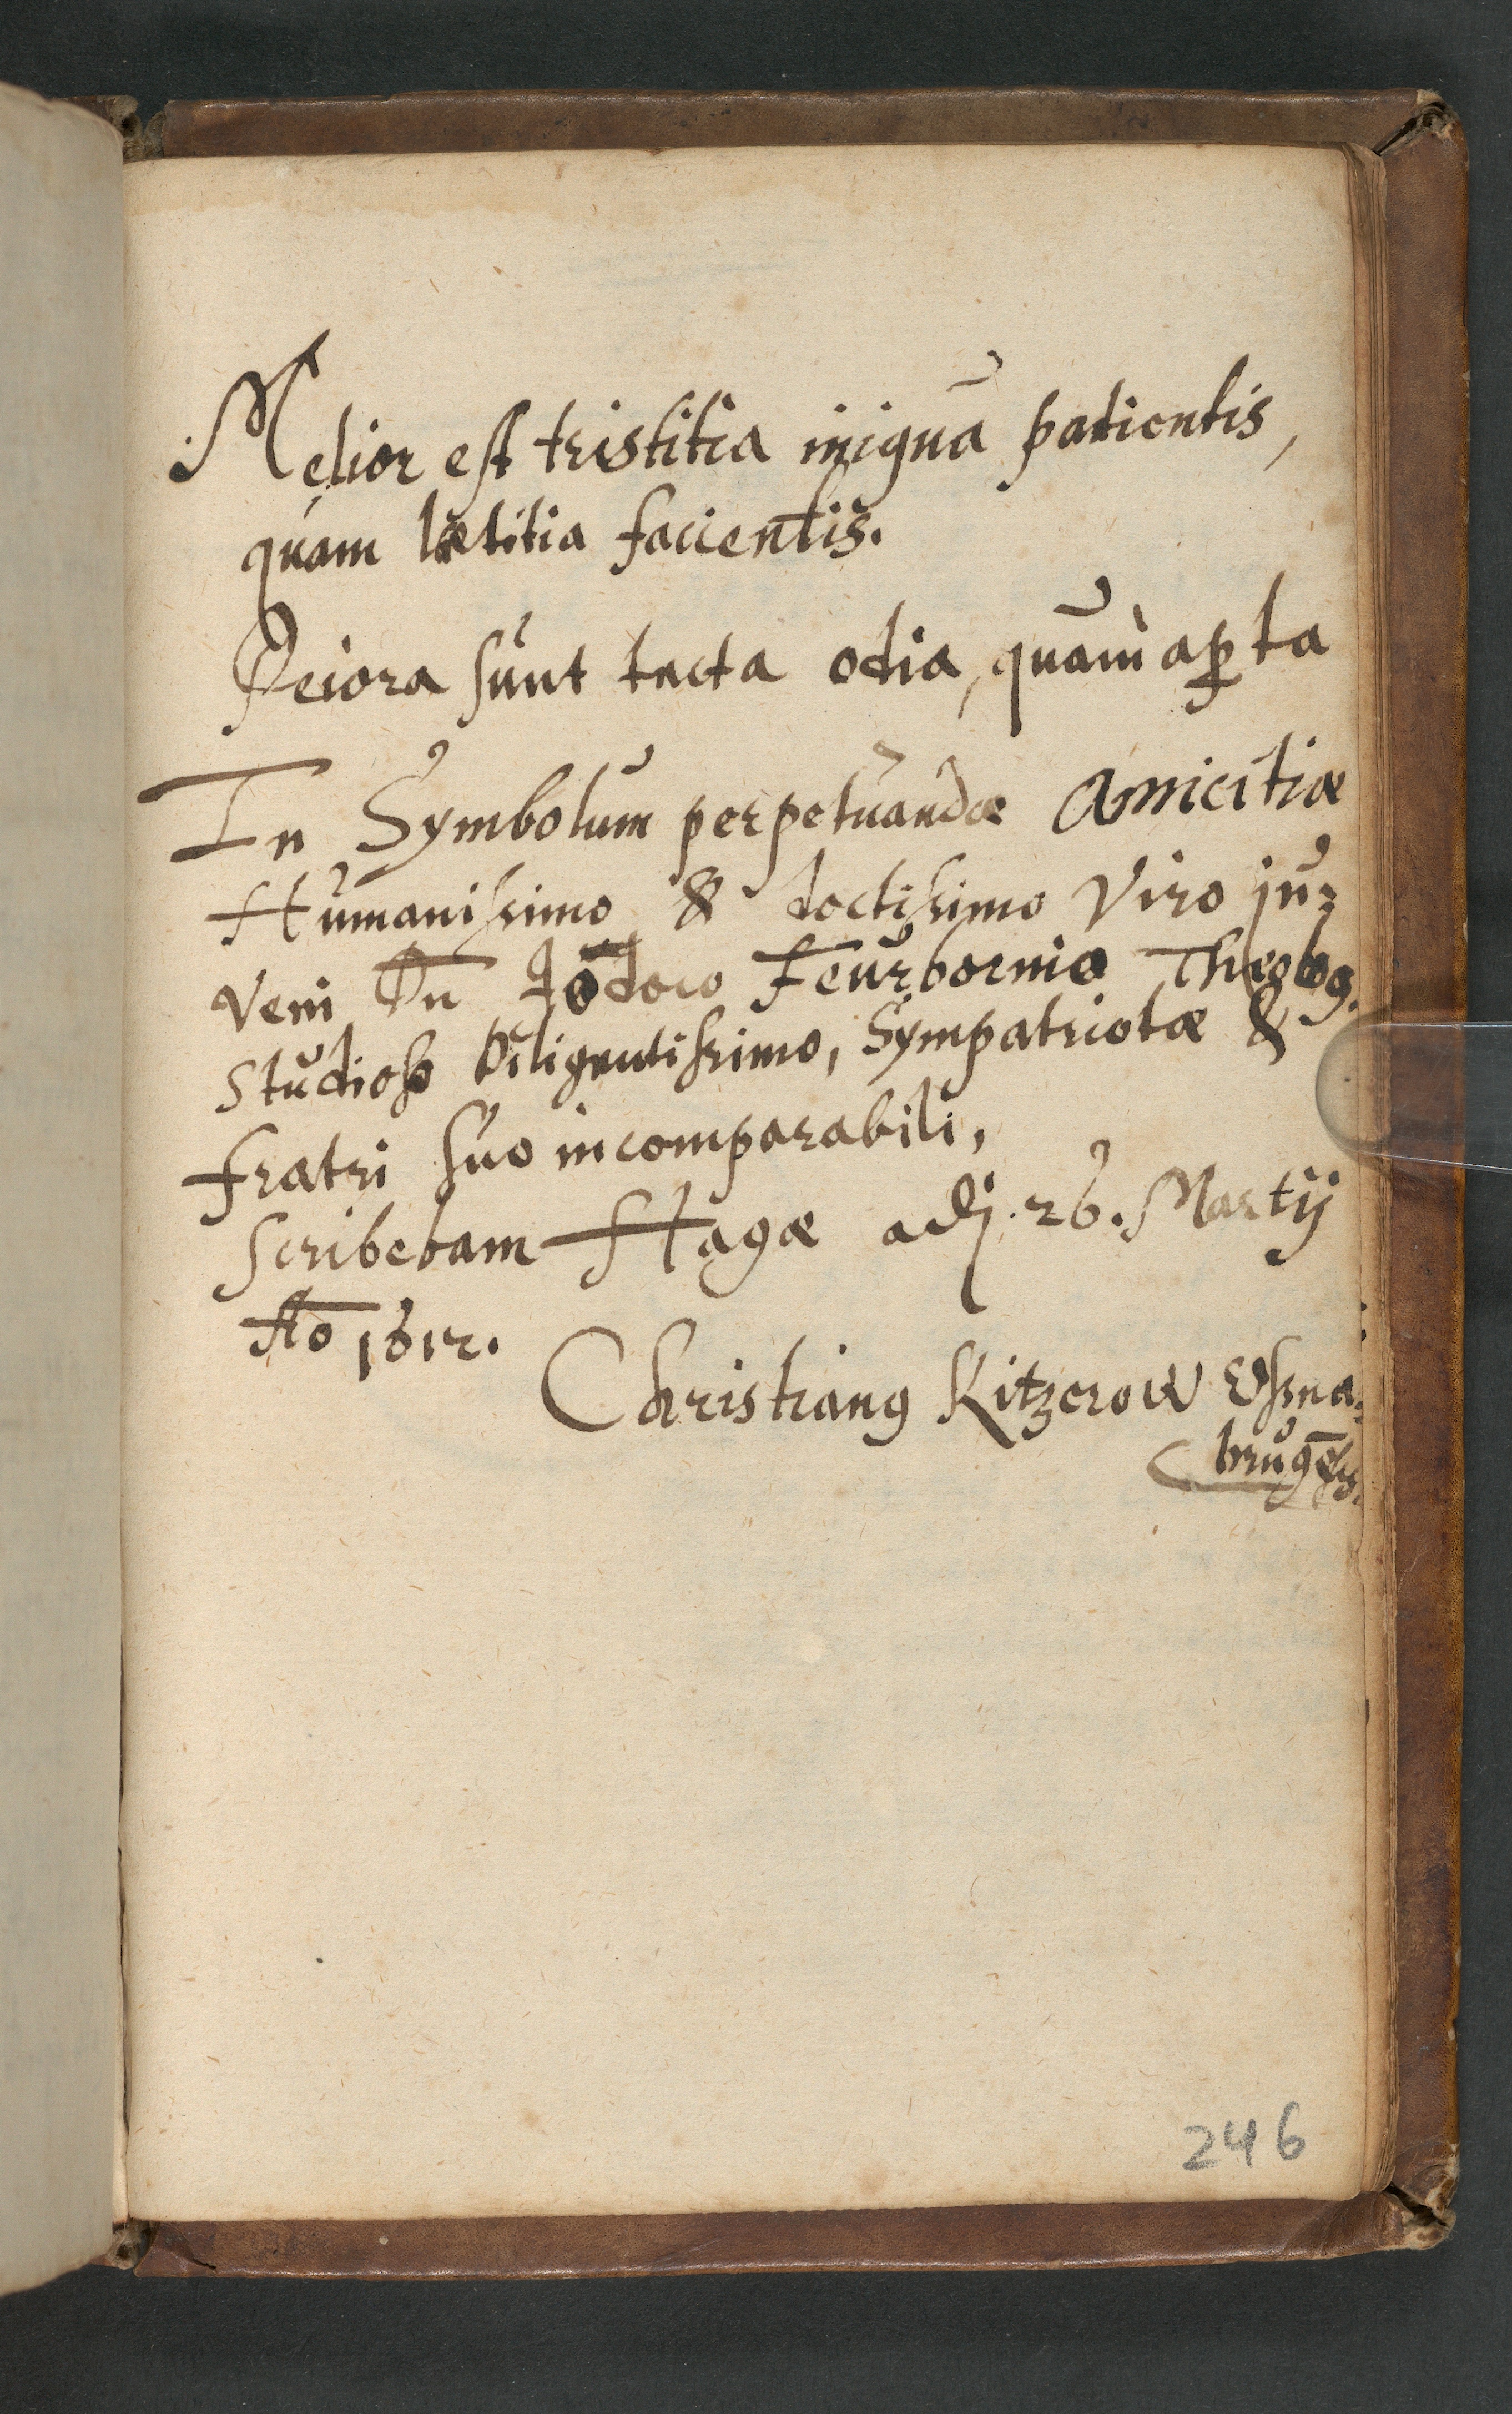 Melior est tristitia iniquā patientis,
quam lætitia facientis.
Peiora sunt tacta odia, quam aꝑta
In Symbolum perpetuandæ Amicitiæ
Humanissimo & doctissimo Viro ju=
veni Dn̄ Jodoco Feurbornio Theolog.
Studioso Diligentissimo, Sympatriotæ &
fratri suo incomparabili,
scribebam Hagæ adj. 26. Martij
Ao 1612.
Christianꝰ Kitzerow Ossna=
brugēs.
246